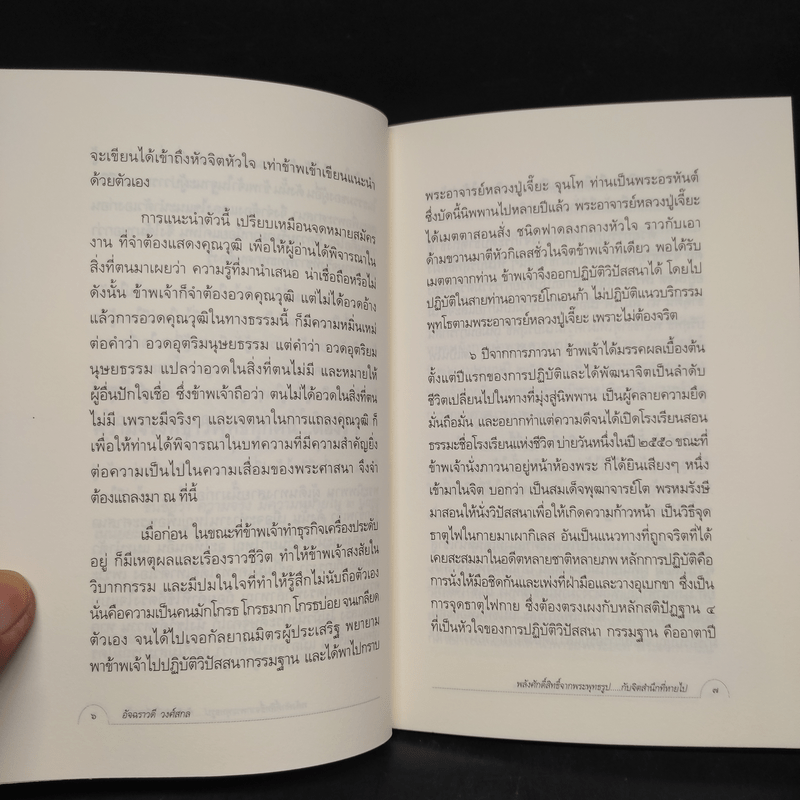 จะเขียนได้เข้าถึงหัวจิตหัวใจ เท่าข้าพเจ้าเขียนแนะนำ
ด้วยตัวเอง
การแนะนำตัวนี้ เปรียบเหมือนจดหมายสมัคร
งาน ที่จำต้องแสดงคุณวุฒิ เพื่อให้ผู้อ่านได้พิจารณาใน
สิ่งที่ตนมาเผยว่า ความรู้ที่มานำเสนอ น่าเชื่อถือหรือไม่
ดังนั้น ข้าพเจ้าก็จำต้องอวดคุณวุฒิ แต่ไม่ได้อวดอ้าง
แล้วการอวดคุณวุฒิในทางธรรมนี้ ก็มีความหมิ่นเหม่
ต่อคำว่า อวดอุตริมนุษยธรรม แต่คำว่า อวดอุตริยม
นุษยธรรม แปลว่าอวดในสิ่งที่ตนไม่มี และหมายให้
ผู้อื่นปักใจเชื่อ ซึ่งข้าพเจ้าถือว่า ตนไม่ได้อวดในสิ่งที่ตน
ไม่มี เพราะมีจริงๆ และเจตนาในการแถลงคุณวุฒิ ก็
เพื่อให้ท่านได้พิจารณาในบทความที่มีความสำคัญยิ่ง
ต่อความเป็นไปในความเสื่อมของพระศาสนา จึงจำ
ต้องแถลงมา ณ ที่นี้
เมื่อก่อน ในขณะที่ข้าพเจ้าทำธุรกิจเครื่องประดับ
อยู่ ก็มีเหตุผลและเรื่องราวชีวิต ทำให้ข้าพเจ้าสงสัยใน
วิบากกรรม และมีปมในใจที่ทำให้รู้สึกไม่นับถือตัวเอง
นั่นคือความเป็นคนมักโกรธ โกรธมาก โกรธบ่อย จนเกลียด
ตัวเอง จนได้ไปเจอกัลยาณมิตรผู้ประเสริฐ พยายาม
พาข้าพเจ้าไปปฏิบัติวิปัสสนากรรมฐาน และได้พาไปกราบ
๖ อัจฉราวดี วงศ์สกล
พระอาจารย์หลวงปู่เจี๊ยะ จุนโท ท่านเป็นพระอรหันต์
ซึ่งบัดนี้นิพพานไปหลายปีแล้ว พระอาจารย์หลวงปู่เจี๊ยะ
ได้เมตตาสอนสั่ง ชนิดฟาดลงกลางหัวใจ ราวกับเอา
ด้ามขวานมาตีหัวกิเลสชั่วในจิตข้าพเจ้าทีเดียว พอได้รับ
เมตตาจากท่าน ข้าพเจ้าจึงออกปฏิบัติวิปัสสนาได้ โดยไป
ปฏิบัติในสายท่านอาจารย์โกเอนก้า ไม่ปฏิบัติแนวบริกรรม
พุทโธตามพระอาจารย์หลวงปู่เจี๊ยะ เพราะไม่ต้องจริต
๖ ปีจากการภาวนา ข้าพเจ้าได้มรรคผลเบื้องต้น
ตั้งแต่ปีแรกของการปฏิบัติและได้พัฒนาจิตเป็นลำดับ
ชีวิตเปลี่ยนไปในทางที่มุ่งสู่นิพพาน เป็นผู้คลายความยึด
มั่นถือมั่น และอยากทำแต่ความดีจนได้เปิดโรงเรียนสอน
ธรรมะชื่อโรงเรียนแห่งชีวิต บ่ายวันหนึ่งในปี ๒๕๕๐ ขณะที่
ข้าพเจ้านั่งภาวนาอยู่หน้าห้องพระ ก็ได้ยินเสียงๆ หนึ่ง
เข้ามาในจิต บอกว่า เป็นสมเด็จพุฒาจารย์โต พรหมรังษี
มาสอนให้นั่งวิปัสสนาเพื่อให้เกิดความก้าวหน้า เป็นวิธีจุด
ธาตุไฟในกายมาเผากิเลส อันเป็นแนวทางที่ถูกจริตที่ได้
เคยสะสมมาในอดีตหลายชาติหลายภพ หลักการปฏิบัติคือ
การนั่งให้มือชิดกันและเพ่งที่ฝ่ามือและวางอุเบกขา ซึ่งเป็น
การจุดธาตุไฟกาย ซึ่งต้องตรงเผงกับหลักสติปัฏฐาน ๔
ที่เป็นหัวใจของการปฏิบัติวิปัสสนา กรรมฐาน คืออาตาปี
พลังศักดิ์สิทธิ์จากพระพุทธรูป.....กับจิตสำนึกที่หายไป ๗